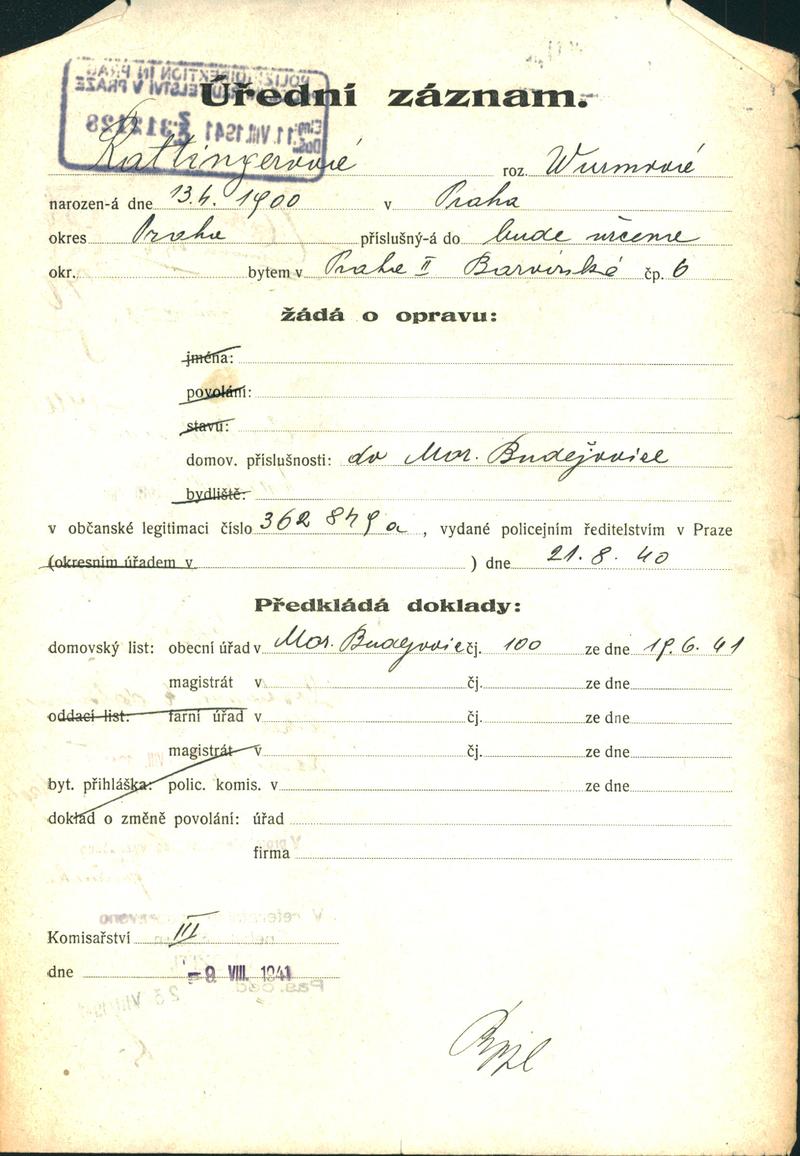 POLIZEIDIREKTION IN PRAG
ŘEDITELSTVÍ V PRAZE
Eing.
Došlo 11. VIII. 1941
Úřední záznam.
Kattingerové roz. Wurmové
narozen-á dne 13.4. 1900 v Praha
okres Praha příslušný-á do bude určeno
okr. bytem v Praha II Barvířská čp. 6
žádá o opravu:
jména:
povolání:
stavu:
domov. příslušnosti: do Mor. Budějovice
bydliště:
v občanské legitimaci číslo 362 849 a, vydané policejním ředitelstvím v Praze
(okresním úřadem v ) dne 21. 8. 40
Předkládá doklady:
domovský list: obecní úřad v Mor. Budějovice čj. 100 ze dne 19.6.41
magistrát v čj. ze dne
oddací list: farní úřad v čj. ze dne
magistrát v čj. ze dne
byt. přihláška: polic. komis. v ze dne
doklad o změně povolání: úřad
firma
V referátu
Komisařství III
dne -9. VIII. 1941
23 VIII 1941